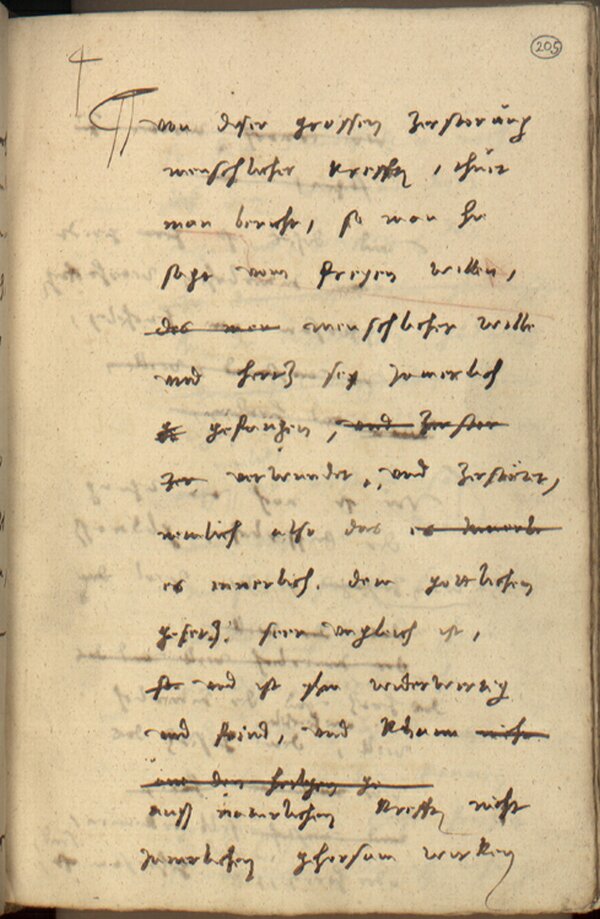 205
von diser grossen Zerstörung
menschlicher krefften, thuet
man bericht, so man hie
sagt vom freyen willen,
das man menschlicher wille
und hertz sey jamerlich
ge gefangen, und Zerstor
verwundet, und Zerstöret,
nemlich also das es innerli
es innerlich dem gottlichen
gesetz seer ungleich ist,
und ist yhm widerwertig
und feind, und khann nicht
auß den
auß naturlichen krefften nicht
innerlichen gehorsam wirken